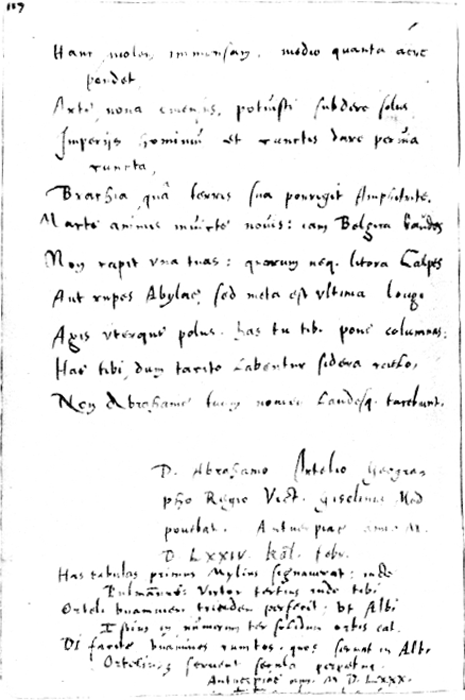 117
Hanc molem immensam, medio quanta aere
pendet,
Arte noua emensus, potuisti subdere solus
Imperijs hominū et cunctis dare peruia
cuncta,
Brachia quâ terris sua porrigit Amphitrite.
Marte animis inuicte nouis: iam Belgica laudes
Non capit vna tuas: quarum neq. litora Calpes
Aut rupes Abylae, sed meta est vltima longi
Axis vterque polus. has tu tibi pone columnas:
Hae tibi, dum tacito labentur sidera caelo,
Non Abrahame tuum nomen laudesq. tacebunt.
D. Abrahamo Ortelio Geogra
pho Regio Vict. Giselinus Med
ponebat. Antuerpiae anno M.
D LXXIV. Kal. Febr.
Has tabulas primus Mylius signauerat: inde
Pulmannus: Victor tertius inde tibi
Orteli nummum perfecit; vt
in numerum ter solidum
Di facite numinis quos seruat in
Ortelius seruent secula
Antuerpiae M D. LXXX.